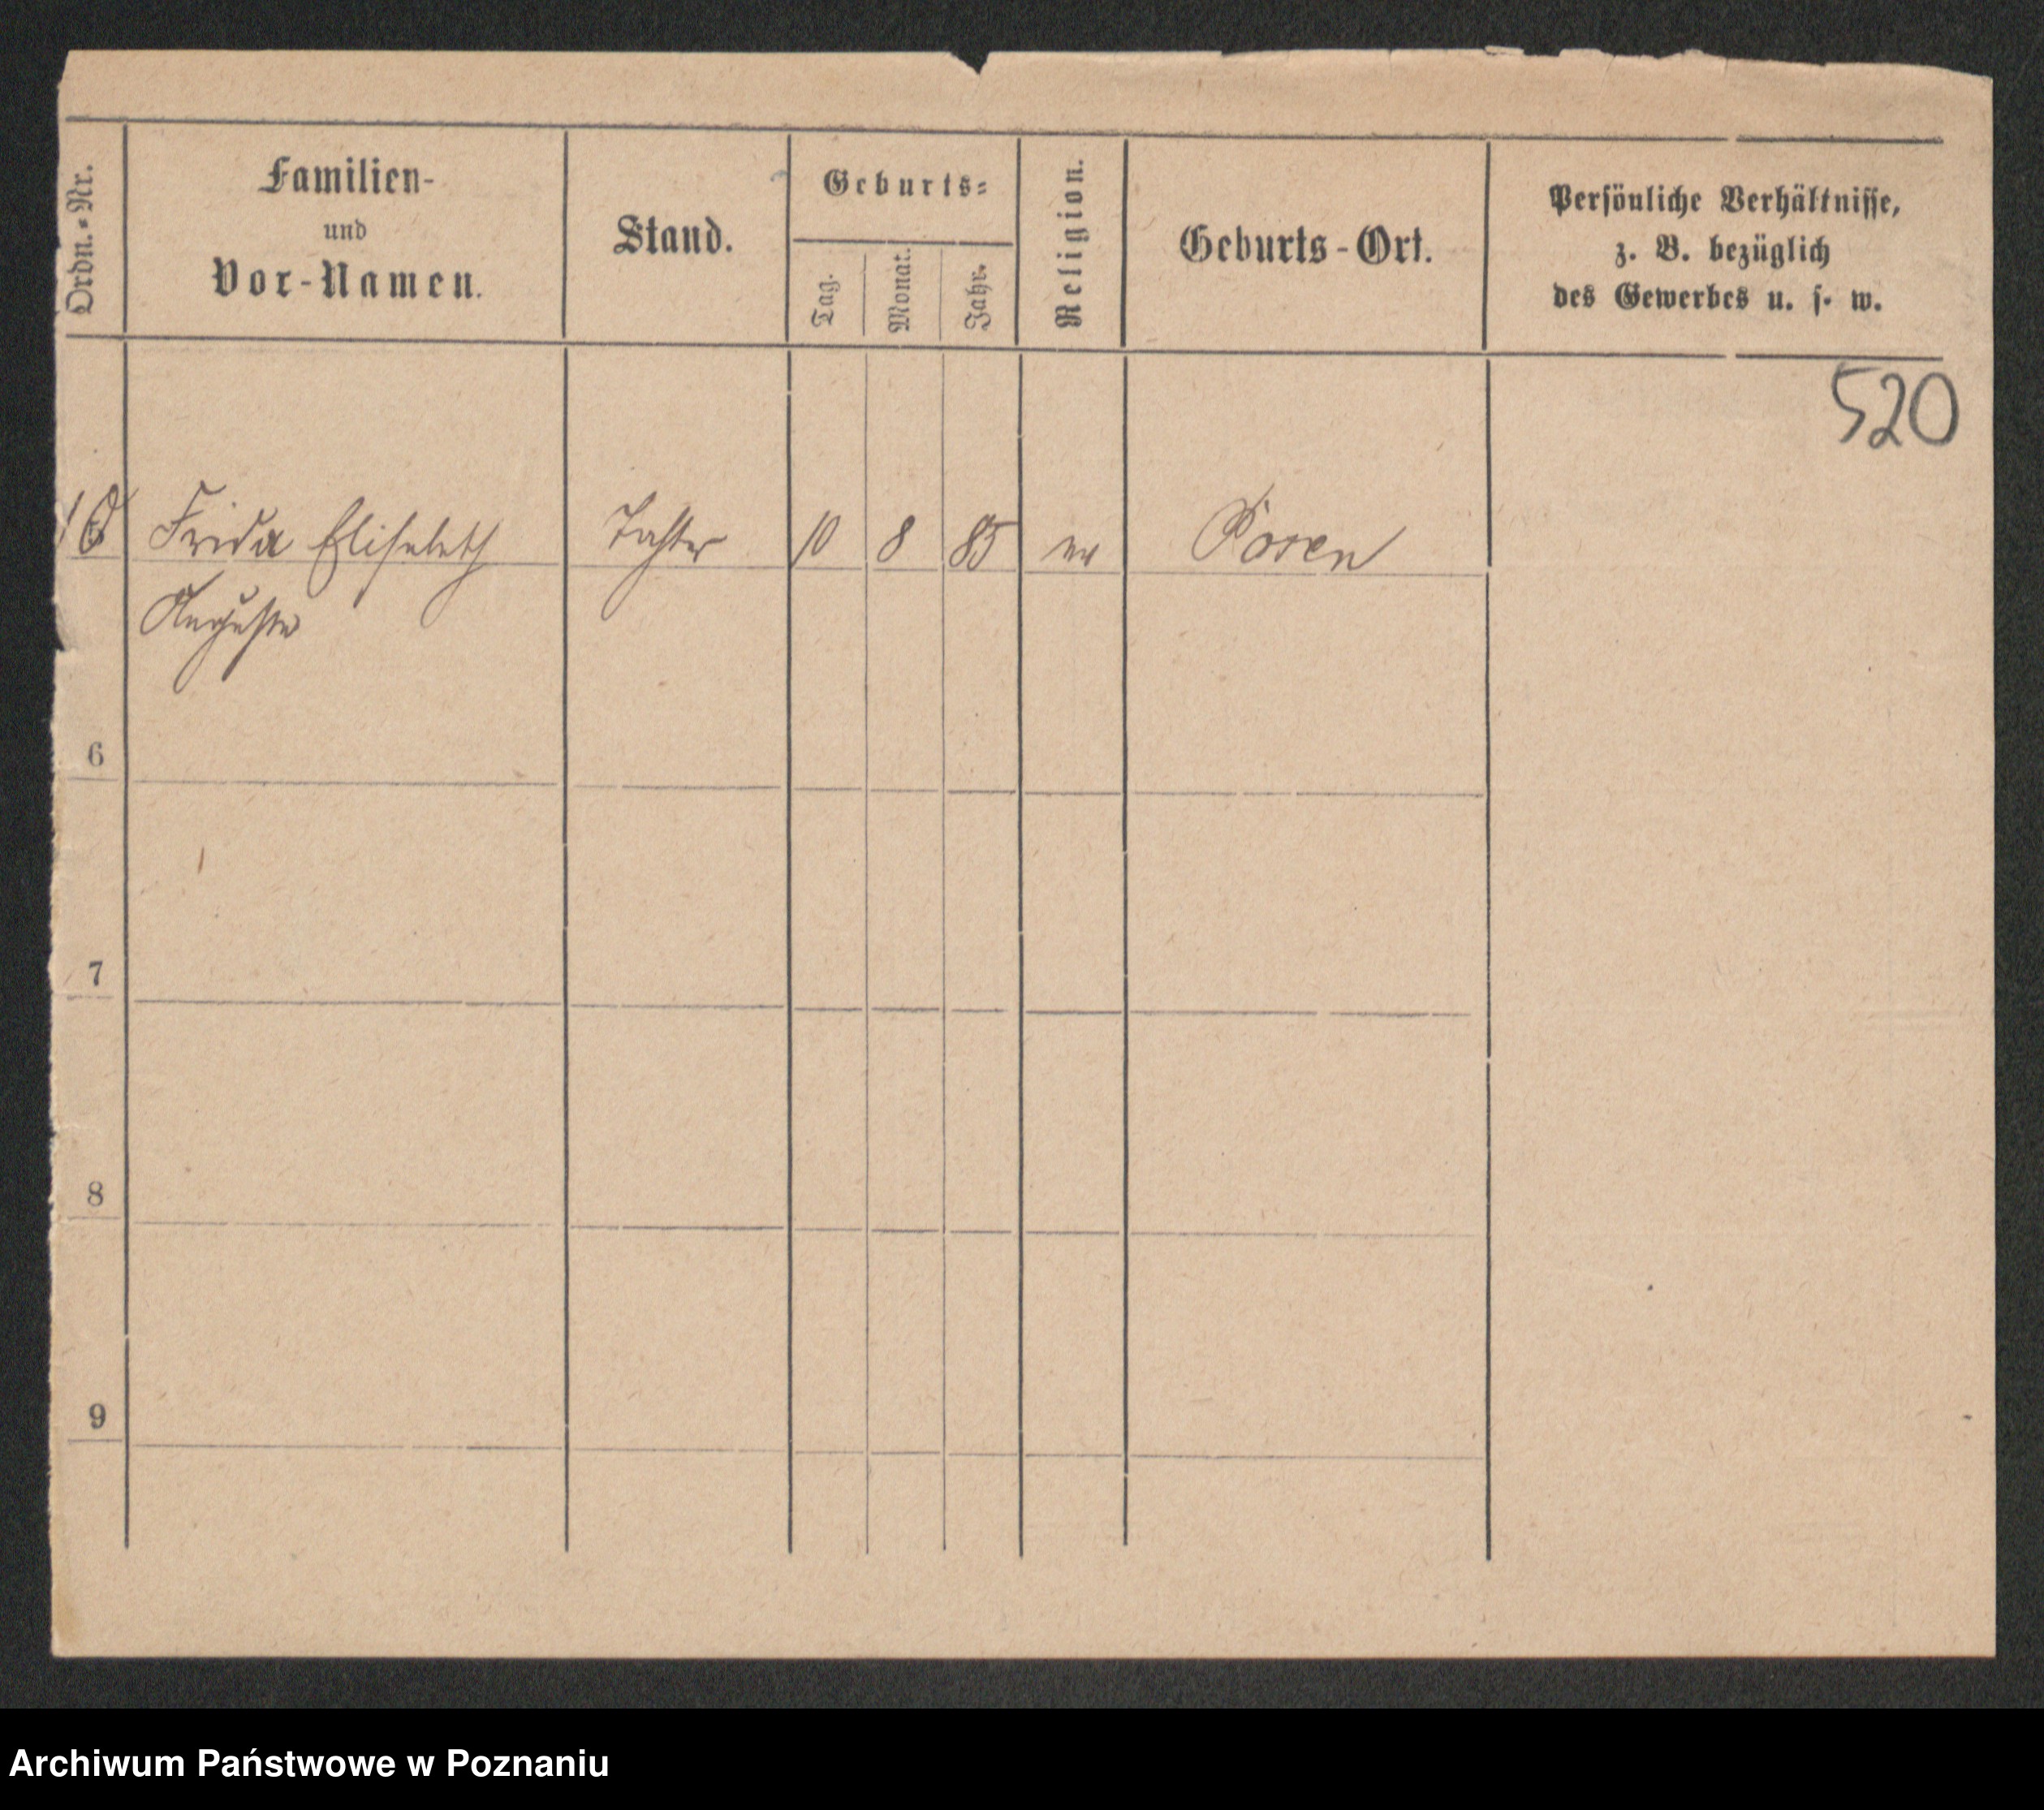 Ordn.-Nr.
Familien-
und
Vor-Namen.
Stand.
Geburts-
Tag.
Monat.
Jahr.
Religion.
Geburts-Ort.
Persönliche Verhältnisse,
z. B. bezüglich
des Gewerbes u. s. w.
520
10 Frida Elisabeth Tochter 10 8 85 ev Posen
Auguste
6
7
8
9
Archiwum Państwowe w Poznaniu